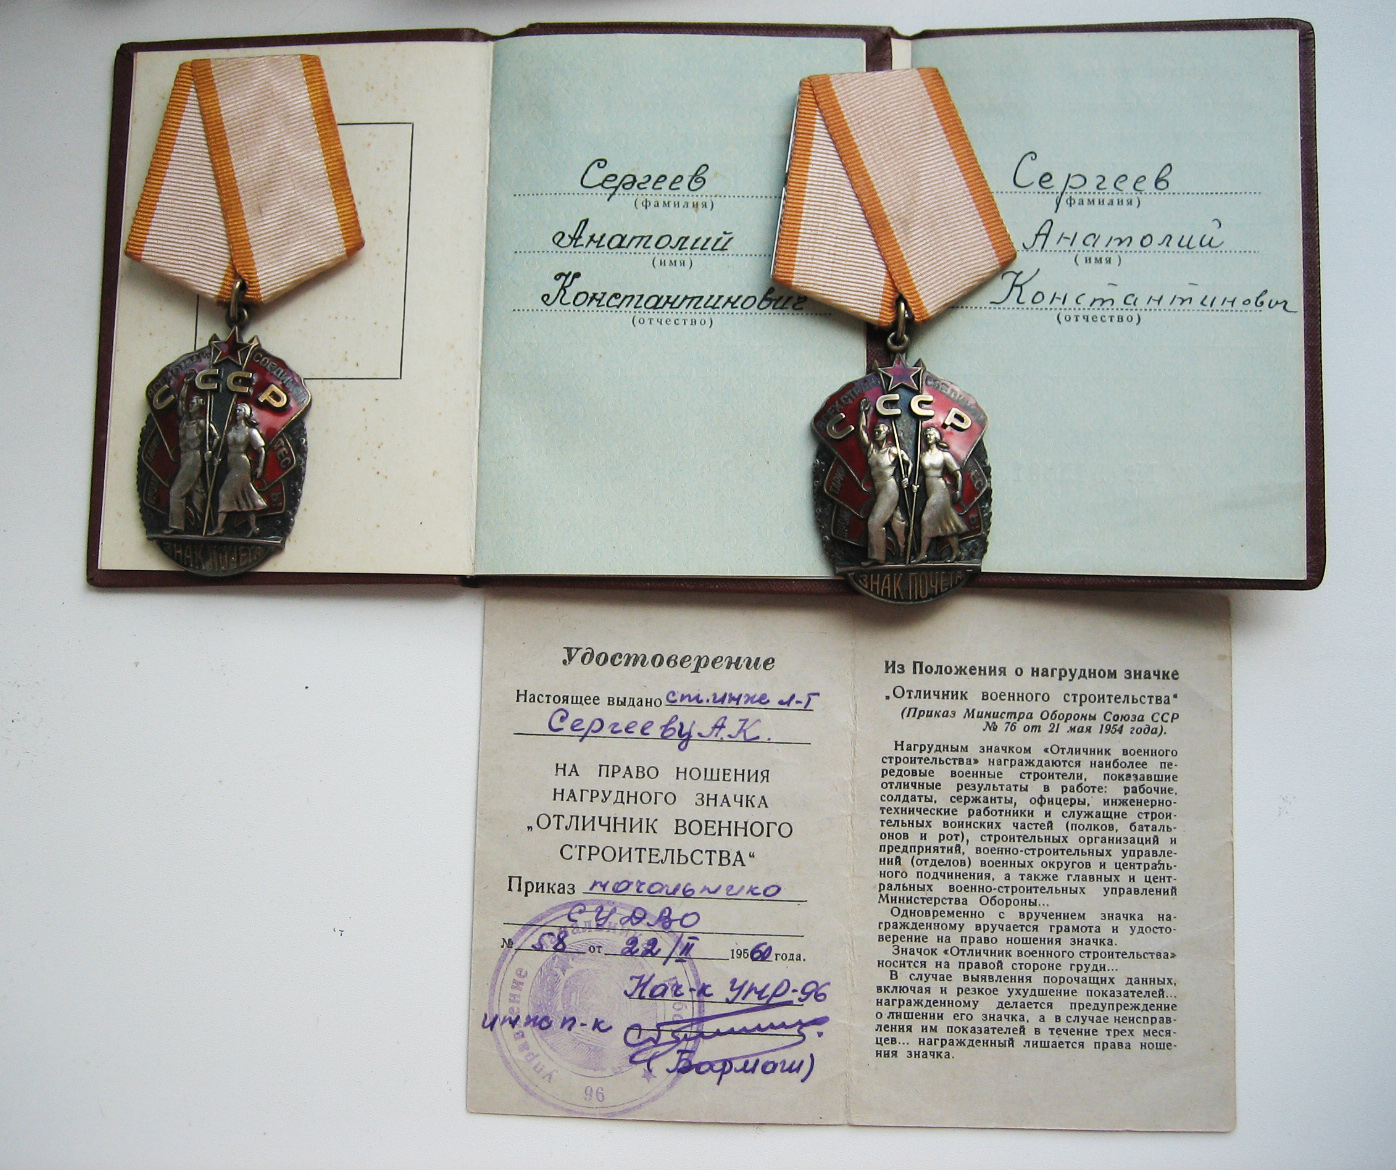 Сергеев
(фамилия)
Анатолий
(имя)
Константинович
(отчество)
Сергеев
(фамилия)
Анатолий
(имя)
Константинович
(отчество)
СССР
ЗНАК ПОЧЕТА
СССР
ЗНАК ПОЧЕТА
Удостоверение
Настоящее выдано ст.инж л-т
Сергееву А.К.
НА ПРАВО НОШЕНИЯ
НАГРУДНОГО ЗНАЧКА
„ОТЛИЧНИК ВОЕННОГО
СТРОИТЕЛЬСТВА“
Приказ начальника
СУДВО
№ 58 от 22/II 19560 года.
Нач-к УНР-96
инж п-к
(Бармаш)
управление
96
Из Положения о нагрудном значке
„Отличник военного строительства“
(Приказ Министра Обороны Союза ССР
№ 76 от 21 мая 1954 года).
Нагрудным значком «Отличник военного
строительства» награждаются наиболее пе-
редовые военные строители, показавшие
отличные результаты в работе: рабочие,
солдаты, сержанты, офицеры, инженерно-
технические работники и служащие строи-
тельных воинских частей (полков, баталь-
онов и рот), строительных организаций и
предприятий, военно-строительных управле-
ний (отделов) военных округов и централь-
ного подчинения, а также главных и цент-
ральных военно-строительных управлений
Министерства Обороны...
Одновременно с вручением значка на-
гражденному вручается грамота и удосто-
верение на право ношения значка.
Значок «Отличник военного строительства»
носится на правой стороне груди...
В случае выявления порочащих данных,
включая и резкое ухудшение показателей...
награжденному делается предупреждение
о лишении его значка, а в случае неисправ-
ления им показателей в течение трех меся-
цев... награжденный лишается права ноше-
ния значка.